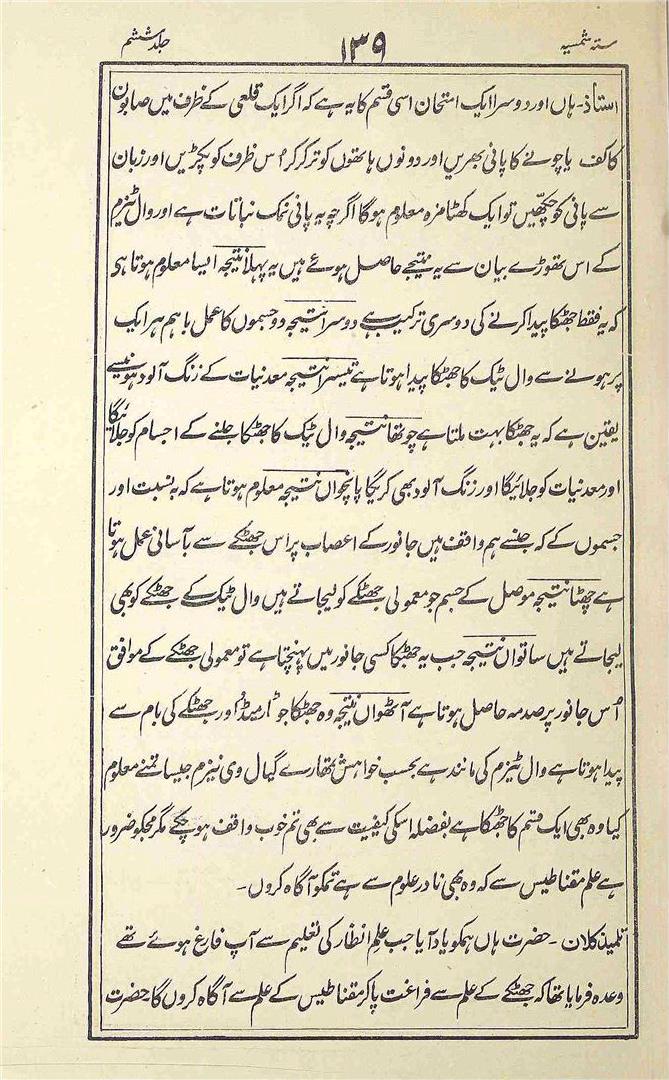 ستہ شمسیہ ۱۳۹ جلد ششم
استاذ۔ ہاں اور دوسرا ایک امتحان اسی قسم کا یہ ہے کہ اگر ایک قلعی کے ظرف میں صابون
کا کف یا چونے کا پانی بھریں اور دونوں ہاتھوں کو تر کر کر اُس ظرف کو پکڑیں اور زبان
سے پانی کو چکھیں تو ایک کھٹا مزہ معلوم ہوگا اگرچہ یہ پانی نمک نباتات ہے اور وال ٹیزم
کے اس تھوڑے بیان سے یہ نتیجے حاصل ہوئے ہیں یہ پہلا نتیجہ ایسا معلوم ہوتا ہی
کہ یہ فقط جھٹکا پیدا کرنے کی دوسری ترکیب ہے دوسرا نتیجہ دو جسموں کا عمل باہم ہر ایک
پر ہونے سے وال ٹیک کا جھٹکا پیدا ہوتا ہے تیسرا نتیجہ معدنیات کے زنگ آلود ہونیسے
یقین ہے کہ یہ جھٹکا بہت ملتا ہے چوتھا نتیجہ وال ٹیک کا جھٹکا جلنے کے اجسام کو جلائیگا
اور معدنیات کو جلائیگا اور زنگ آلود بھی کریگا پانچواں نتیجہ معلوم ہوتا ہے کہ بہ نسبت اور
جسموں کے کہ جنسے ہم واقف ہیں جانور کے اعصاب پر اس جھٹکے سے بآسانی عمل ہوتا
ہے چھٹا نتیجہ موصل کے جسم جو معمولی جھٹکے کو لیجاتے ہیں وال ٹیک کے جھٹکے کو بھی
لیجاتے ہیں ساتواں نتیجہ جب یہ جھٹکا کسی جانور میں پہنچتا ہے تو معمولی جھٹکے کے موافق
اُس جانور پر صدمہ حاصل ہوتا ہے آٹھواں نتیجہ وہ جھٹکا جو ٹارمیڈو اور جھٹکے کی بام سے
پیدا ہوتا ہے وال ٹیزم کی مانند ہے بحسب خواہش تمھارے گیال وی نیزم جیسا تمنے معلوم
کیا وہ بھی ایک قسم کا جھٹکا ہے بفضلہ اسکی کیفیت سے بھی تم خوب واقف ہو چکے مگر مجھکو ضرور
ہے علم مقناطیس سے کہ وہ بھی نادر علوم سے ہے تمکو آگاہ کروں۔
تلمیذ کلان۔ حضرت ہاں ہمکو یاد آیا جب علم انظار کی تعلیم سے آپ فارغ ہوئے تھے
وعدہ فرمایا تھا کہ جھٹکے کے علم سے فراغت پاکر مقناطیس کے علم سے آگاہ کروں گا حضرت